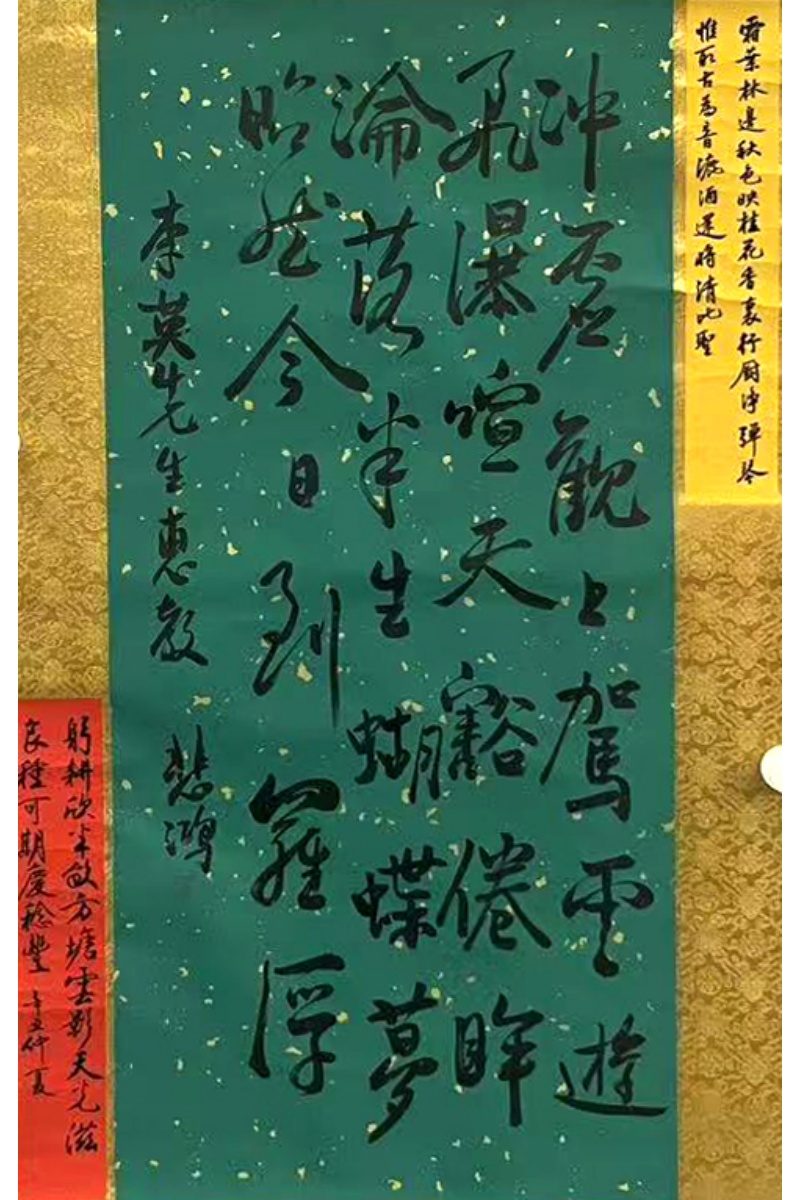 霜葉林邊秋色映桂花香裏行厨淨彈琴
惟取古為音漉酒還將清比聖
沖虛觀上駕雲遊
飛瀑喧天豁倦眸
淪落半生蝴蝶夢
昭然今日到羅浮
李英先生惠教 悲鴻
躬耕欣半畝方塘雲影天光滋
良種可期慶稔豐 辛丑仲夏